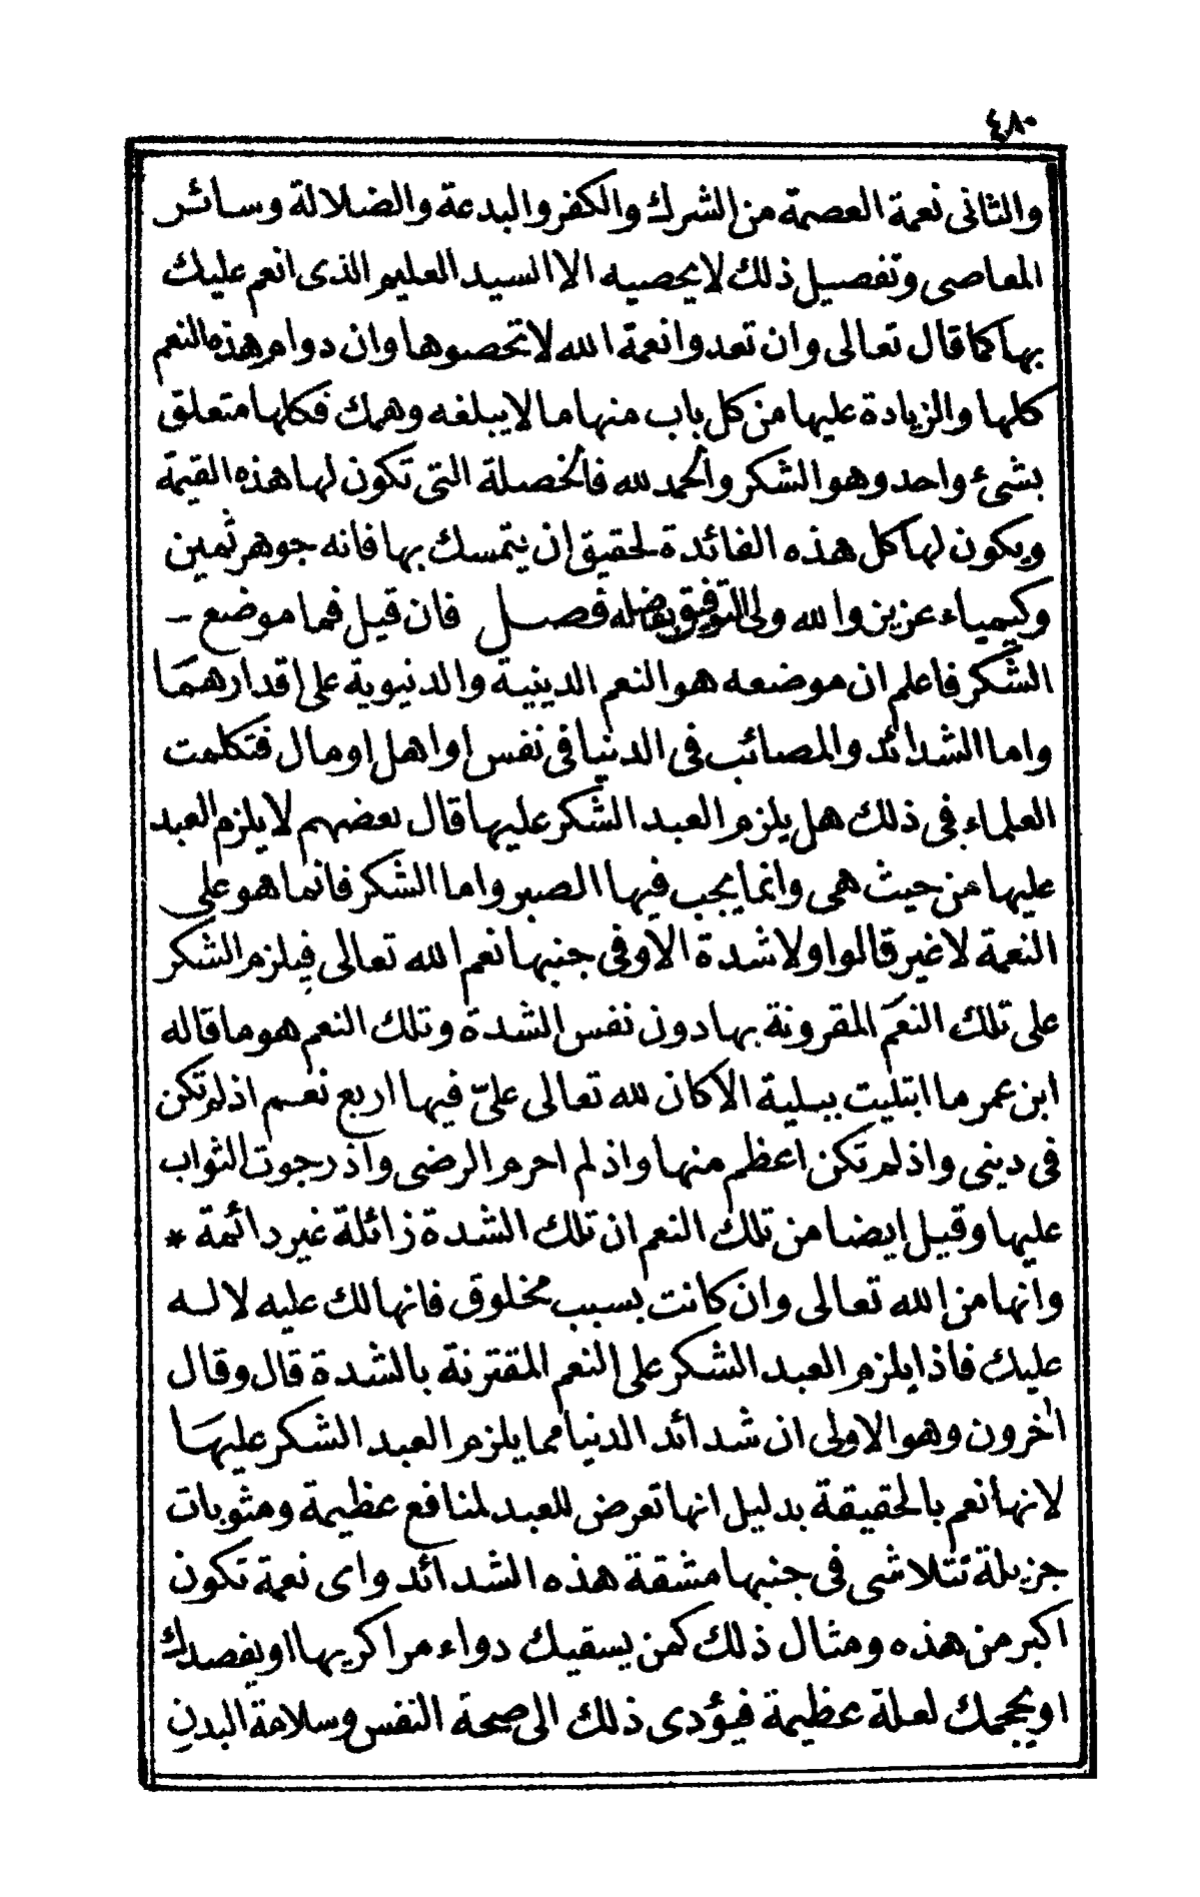 ٤٨٠
والثانى نعمة العصمة من الشرك والكفر والبدعة والضلالة وسائر
المعاصى وتفصيل ذلك لا يحصيه الا السيد العليم الذى انعم عليك
بها كما قال تعالى وان تعدوا نعمة الله لا تحصوها وان دوام هذه النعم
كلها والزيادة عليها من كل باب منها ما لا يبلغه وهمك فكلها متعلق
بشئ واحد وهو الشكر والحمد لله فالخصلة التى تكون لها هذه القيمة
ويكون لها كل هذه الفائدة لحقيق ان يتمسك بها فانه جوهر ثمين
وكيمياء عزيز والله ولى التوفيق بفضله فصل فان قيل فما موضع -
الشكر فاعلم ان موضعه هو النعم الدينية والدنيوية على اقدارهما
واما الشدائد والمصائب فى الدنيا فى نفس او اهل او مال فتكلمت
العلماء فى ذلك هل يلزم العبد الشكر عليها قال بعضهم لا يلزم العبد
عليها من حيث هى وانما يجب فيها الصبر واما الشكر فانما هو على
النعمة لا غير قالوا ولا شدة الا وفى جنبها نعم الله تعالى فيلزم الشكر
على تلك النعَم المقرونة بها دون نفس الشدة وتلك النعم هو ما قاله
ابن عمر ما ابتليت ببلية الا كان لله تعالى علىّ فيها اربع نعم اذ لم تكن
فى دينى واذ لم تكن اعظم منها واذ لم احرم الرضى واذ رجوت الثواب
عليها وقيل ايضا من تلك النعم ان تلك الشدة زائلة غير دائمة *
وانها من الله تعالى وان كانت بسبب مخلوق فانها لك عليه لا له
عليك فاذا يلزم العبد الشكر على النعم المقترنة بالشدة قال وقال
اٰخرون وهو الاولى ان شدائد الدنيا مما يلزم العبد الشكر عليهَا
لانها نعم بالحقيقة بدليل انها تعرض للعبد لمنافع عظيمة ومثوبات
جزيلة تتلاشى فى جنبها مشقة هذه الشدائد واى نعمة تكون
اكبر من هذه ومثال ذلك كمن يسقيك دواء مرا كريها او يفصدك
او يحجمك لعلة عظيمة فيؤدى ذلك الى صحة النفس وسلامة البدن